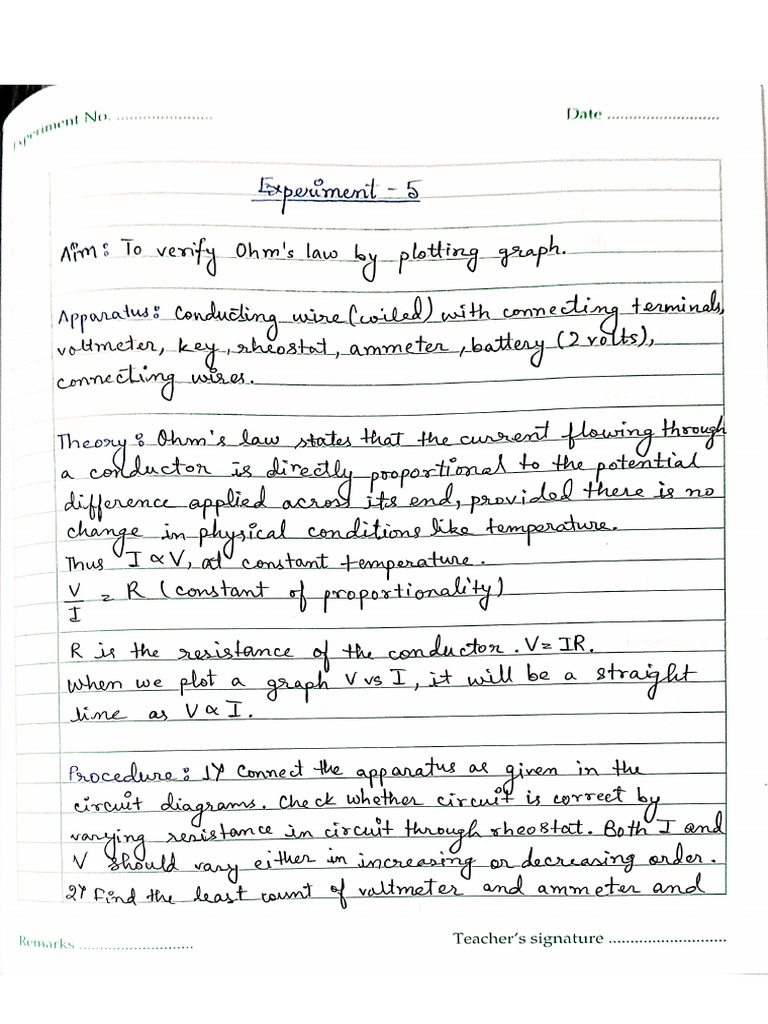 Experiment No. ......................
Date ............................
Experiment - 5
Aim: To verify Ohm's law by plotting graph.
Apparatus: Conducting wire (coiled) with connecting terminals,
voltmeter, key, rheostat, ammeter, battery (2 volts),
connecting wires.
Theory: Ohm's law states that the current flowing through
a conductor is directly proportional to the potential
difference applied across its end, provided there is no
change in physical conditions like temperature.
Thus I ∝ V, at constant temperature.
V/I = R (constant of proportionality)
R is the resistance of the conductor. V = IR.
When we plot a graph V vs I, it will be a straight
line as V ∝ I.
Procedure: 1) Connect the apparatus as given in the
circuit diagrams. Check whether circuit is correct by
varying resistance in circuit through rheostat. Both I and
V should vary either in increasing or decreasing order.
2) Find the least count of voltmeter and ammeter and
Remarks ............................
Teacher's signature .............................